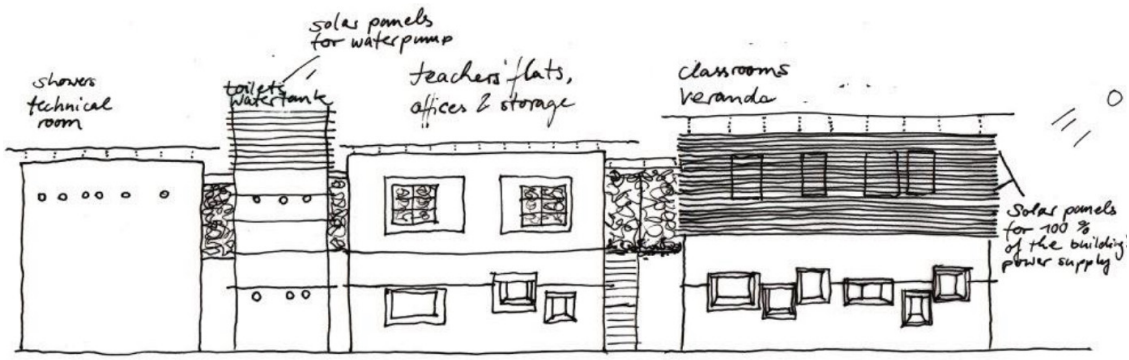 showers
technical
room
solar panels
for waterpump
toilets
watertank
teachers' flats,
offices & storage
classrooms
veranda
Solar panels
for 100 %
of the building's
power supply